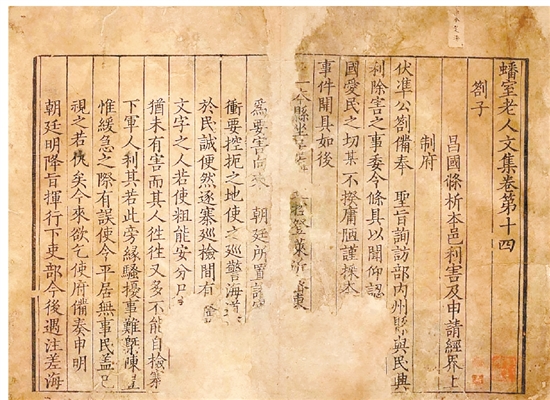 蟠室老人文集卷第十四
劄子
昌國條析本邑利害及申請經界上
制府
伏準公劄備奉 聖旨詢訪部內州縣與民興
利除害之事委令條具以聞仰認
國愛民之切某不揆庸陋謹採本
事件開具如後
一 縣
登萊
為要害向來 朝廷所置
衝要控扼之地使之巡警海道
於民誠便然逐寨巡檢間有
文字之人若使粗能安分
猶未有害而其人徃徃又多不能自檢
下軍人利其若此旁緣騷擾事難槩陳
惟緩急之際有誤使令平居無事民蓋已
視之若 矣今來欲乞使府備奏申明
朝廷明降旨揮行下吏部今後遇注差海